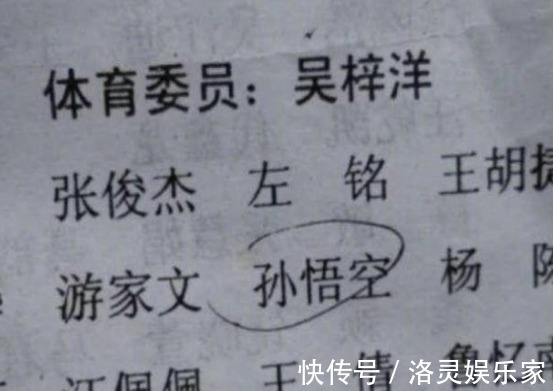 体育委员：吴梓洋
张俊杰 左 铭 王胡捷
游家文 孙悟空 杨
江佩佩 王
快传号／洛灵娱乐家